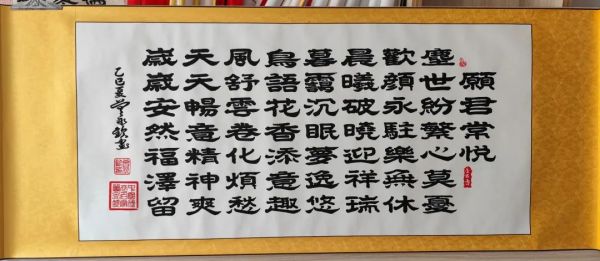 願君常悦
塵世紛繁心莫憂
歡顔永駐樂無休
晨曦破曉迎祥瑞
暮靄沉眠夢逸悠
鳥語花香添意趣
風舒雲卷化煩愁
天天暢意精神爽
歲歲安然福澤留
乙巳夏